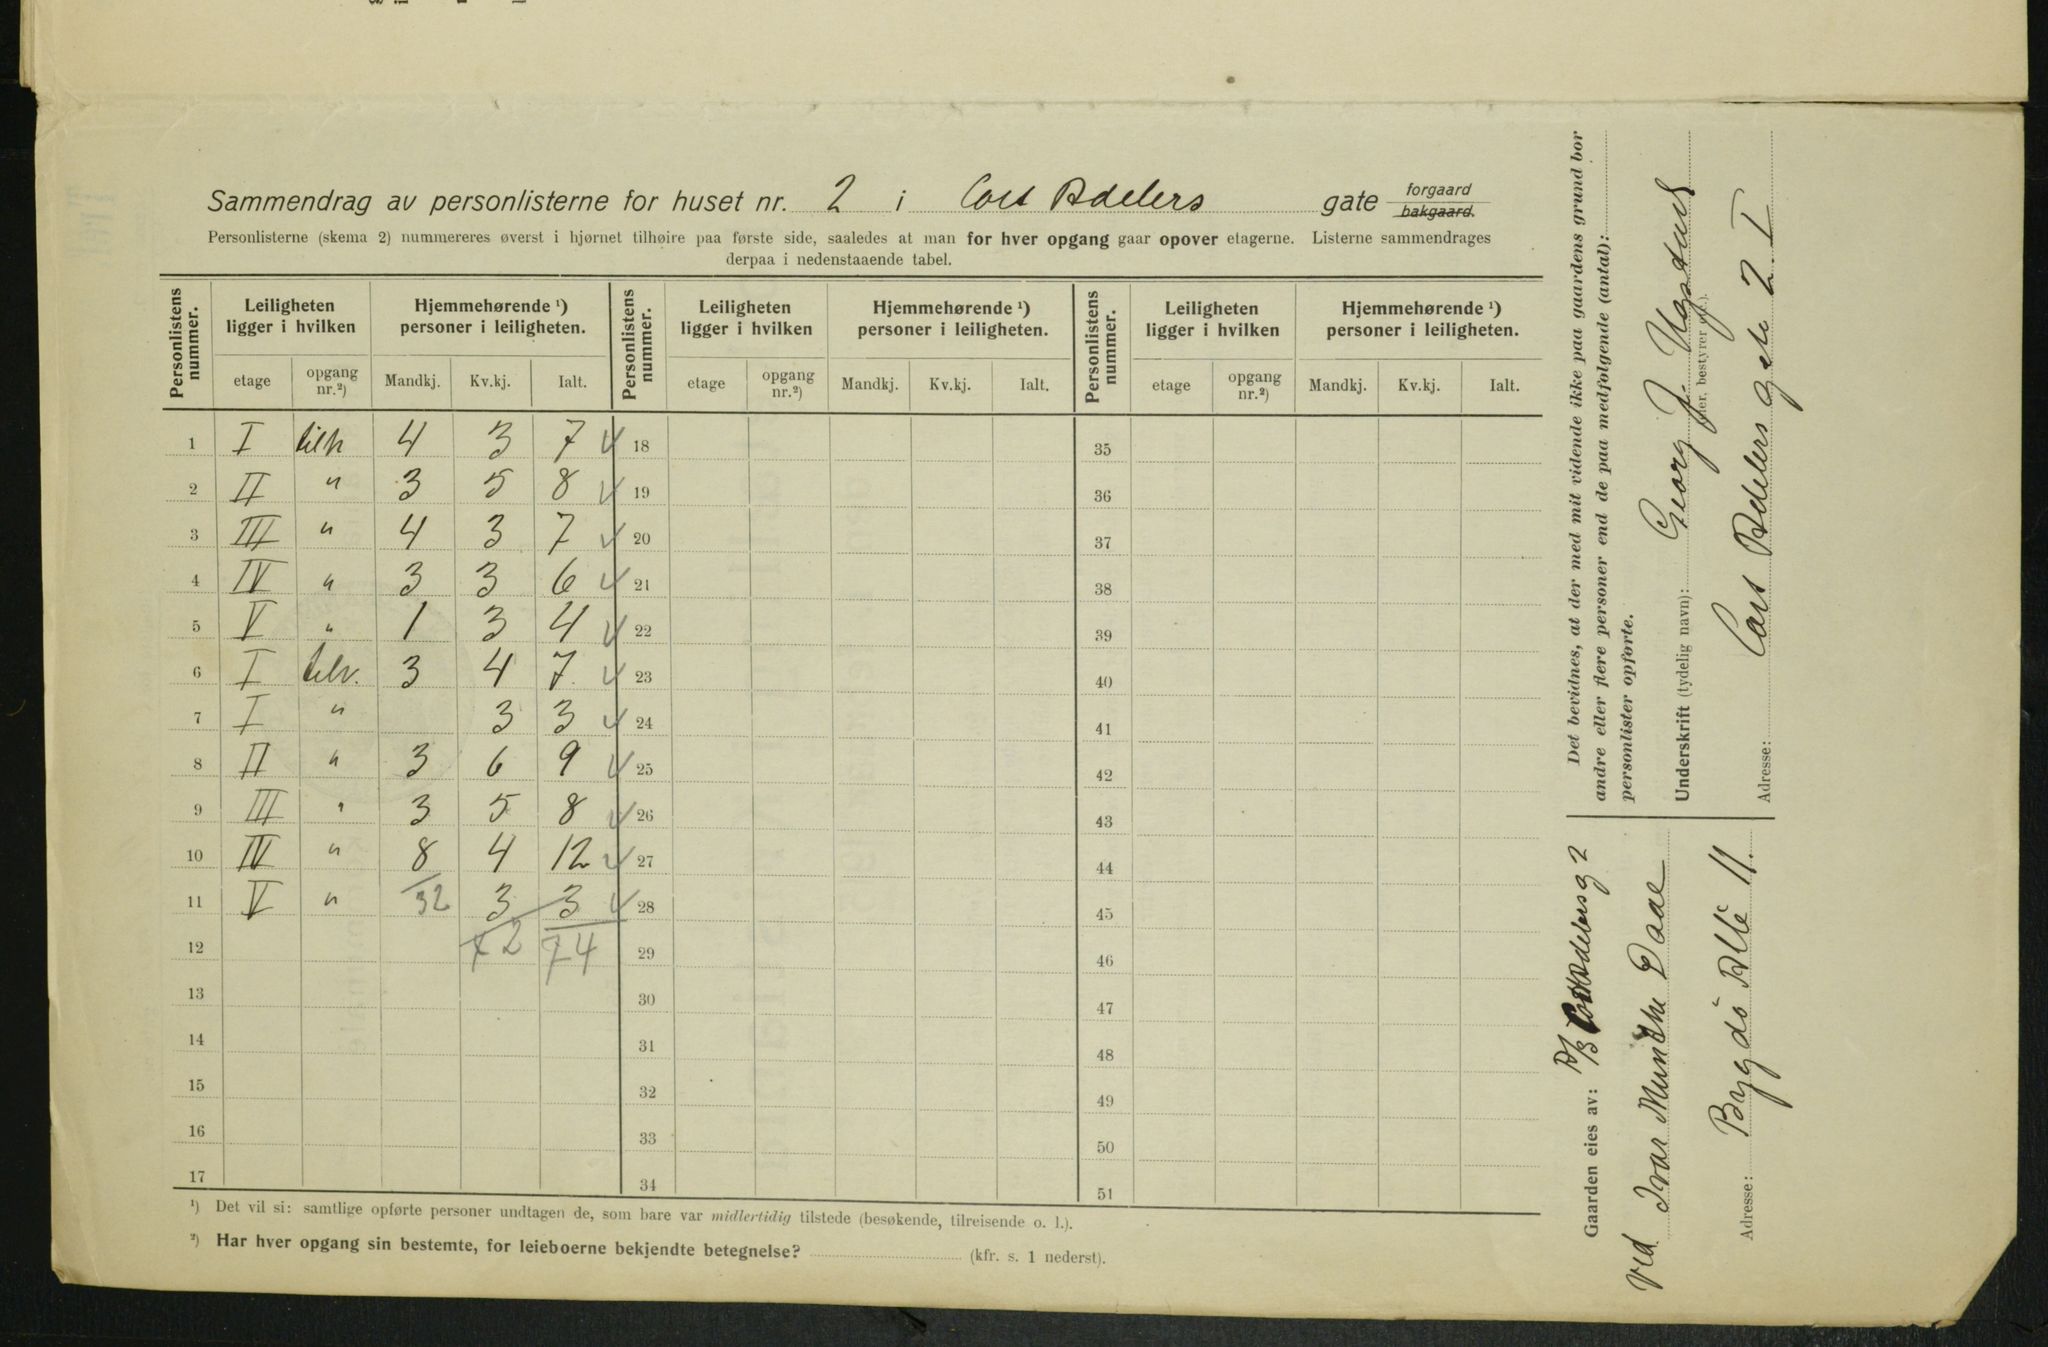 Sammendrag av personlisterne for huset nr. 2 i Cort Adelers gate forgaard bakgaard.
Personlisterne (skema 2) nummereres øverst i hjørnet tilhøire paa første side, saaledes at man for hver opgang gaar opover etagerne. Listerne sammendrages
derpaa i nedenstaaende tabel.
Personlistens nummer. Leiligheten ligger i hvilken Hjemmehørende ¹) personer i leiligheten. Personlistens nummer. Leiligheten ligger i hvilken Hjemmehørende ¹) personer i leiligheten. Personlistens nummer. Leiligheten ligger i hvilken Hjemmehørende ¹) personer i leiligheten.
etage opgang nr.²) Mandkj. Kv.kj. Ialt. etage opgang nr.²) Mandkj. Kv.kj. Ialt. etage opgang nr.²) Mandkj. Kv.kj. Ialt.
1 I tilh 4 3 7 18 35
2 II " 3 5 8 19 36
3 III " 4 3 7 20 37
4 IV " 3 3 6 21 38
5 V " 1 3 4 22 39
6 I tilv. 3 4 7 23 40
7 I " 3 3 24 41
8 II " 3 6 9 25 42
9 III " 3 5 8 26 43
10 IV " 8 4 12 27 44
11 V " 32 3 3 28 45
12 42 74 29 46
13 30 47
14 31 48
15 32 49
16 33 50
17 34 51
¹) Det vil si: samtlige opførte personer undtagen de, som bare var midlertidig tilstede (besøkende, tilreisende o. l.).
²) Har hver opgang sin bestemte, for leieboerne bekjendte betegnelse? (kfr. s. 1 nederst).
Det bevidnes, at der med mit vidende ikke paa gaardens grund bor
andre eller flere personer end de paa medfølgende (antal):
personlister opførte.
Underskrift (tydelig navn): Georg J.
(eier, bestyrer o. l.).
Adresse: Cort Adelers gate 2 I
Gaarden eies av: A/S Cort Adelersg 2
ved Ivar Munthe Daae
Adresse: Bygdö Allé 11.